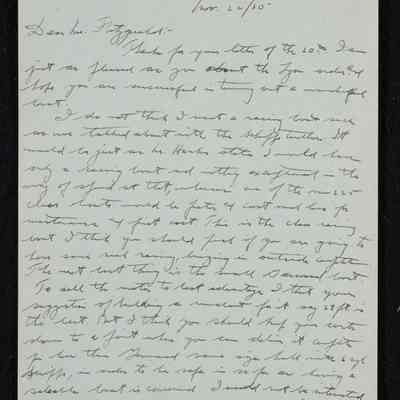 Nov. 22/15
Dear Mr. Fitzgerald:-
Thanks for your letter of the 20th I am
just as pleased as you about the
hope you are successful in turning out a wonderful
boat.
I do not think I want a racing boat such
as we talked about with the Scripps motor. It
would be just as Mr. states I would have
only a racing boat and nothing exceptional in the
way of speed at that, whereas one of the new 225
class boats would be faster & cost and less for
maintenance & first cost. This is the class racing
boat I think you should push if you are going to
have some racing in outside
The next best thing is the small boat.
To sell the to best advantage I think your
suggestion of building a runabout for it say 28 ft is
the best. But I think you should keep your costs
down to a point where you can sell it
for less than same size hull with 6 cyl
Scripps, in order to be safe in so far as having a
saleable boat is concerned. I would not be interested